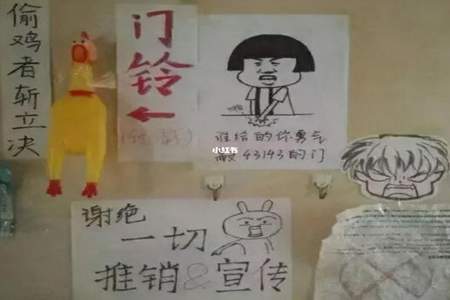 偷鸡者斩立决
门铃
谁给的你勇气
敲43143的门
小红书
谢绝
一切
推销&宣传